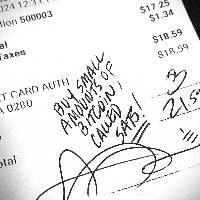 2024 12:33
tion 500003
$17.25
$1.34
al
$18.59
Taxes
$18.59
T CARD AUTH
A 0280
3
21.59
otal
BUY SMALL
AMOUNTS OF
BITCOIN,
CALLED
SATS!